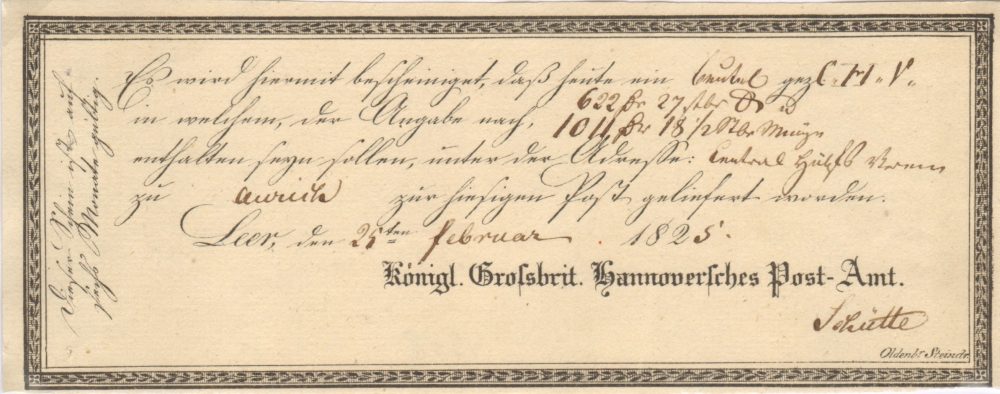 Es wird hiermit bescheiniget, daß heute ein beutel gez C. H. V.
622 Rr 27 stbr
in welchem, der Angabe nach, 1011 Rr 18 1/2 Stbr Münze
enthalten seyn sollen, unter der Adresse: Central Hülfs Verein
zu Aurich zur hiesigen Post geliefert worden.
Leer, den 25ten Februar 1825.
Königl. Grosſbrit. Hannoverſches Post-Amt.
Schütte
Oldenbr Steindr.
Dieser Schein ist auf
sechs Monate gültig.